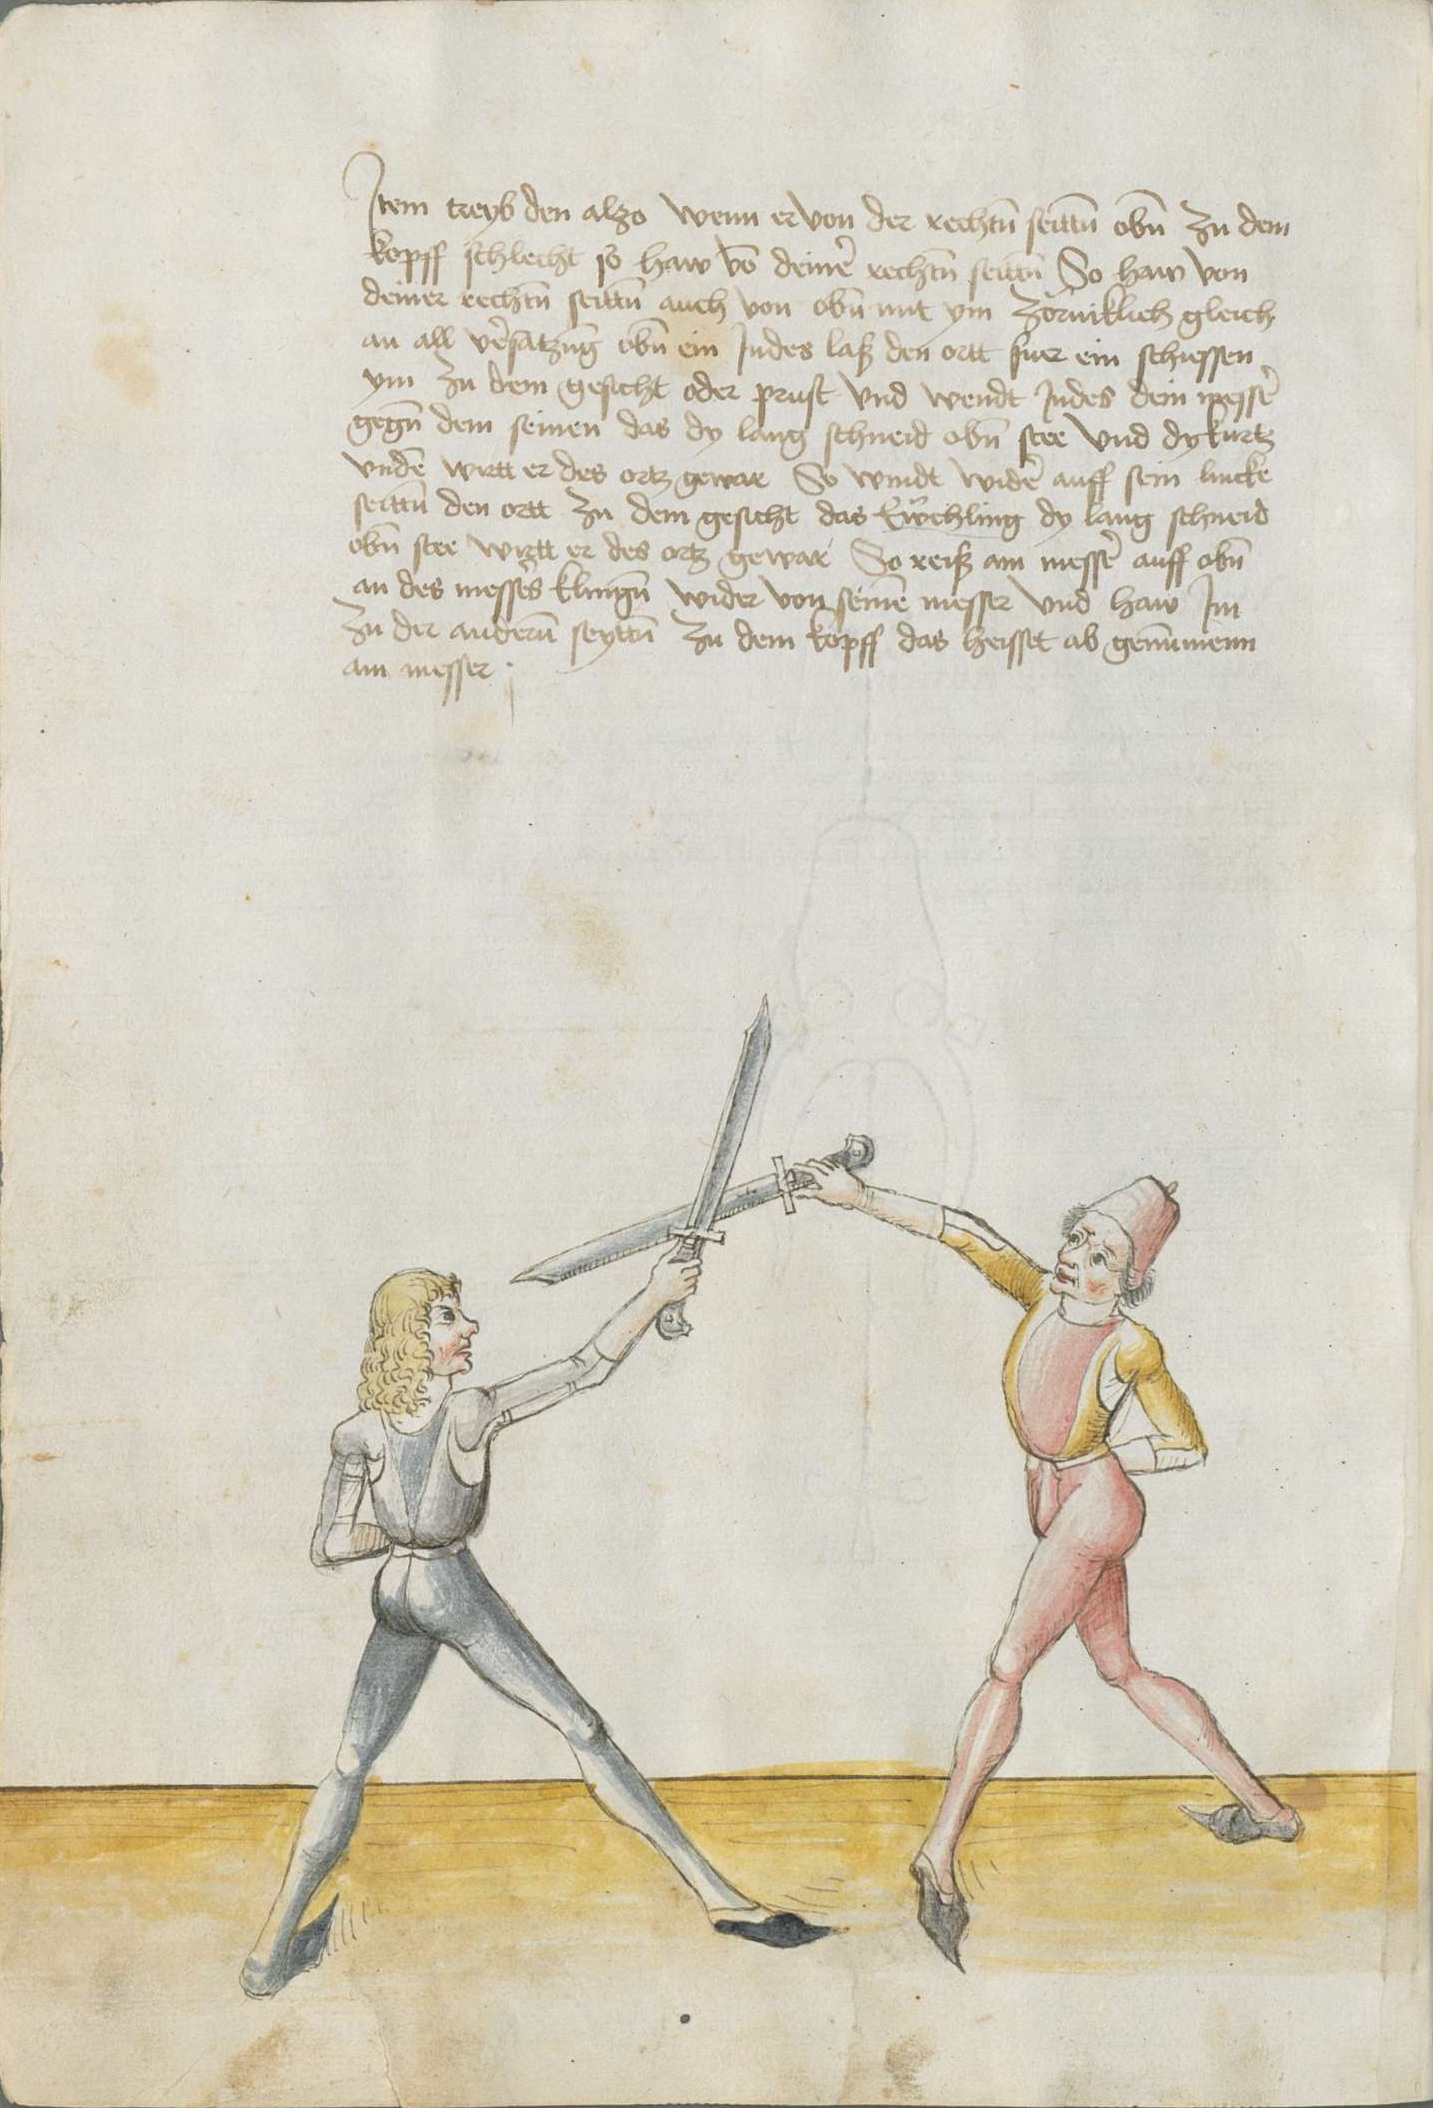 Item treyb den alzo wenn er von der rechtn̄ seittn̄ obn̄ zu dem
kopff schlecht so haw vō deinē rechtn̄ seittn̄ So haw von
deiner rechtn̄ seittn̄ auch von obn̄ mit ym zornिklich gleich
an all vēsatzūg obn̄ ein Indes laß den ortt fuer ein schyessen
ym zu dem gesicht oder prust vnd wendt Indes dein messē
gegn̄ dem seinen das dy lang schneid obn̄ stee vnd dy kurtz
vndē wirtt er des ortz gewar So windt widē auff sein lincke
seittn̄ den ortt zu dem gesicht das dy lang schneid
obn̄ stee wirtt er des ortz gewar So reiß am messē auff obn̄
an des messēs klingn̄ wider von seinē messer vnd haw Im
zu der andern̄ seyttn̄ zu dem kopff das heisset ab genūmenn
am messer